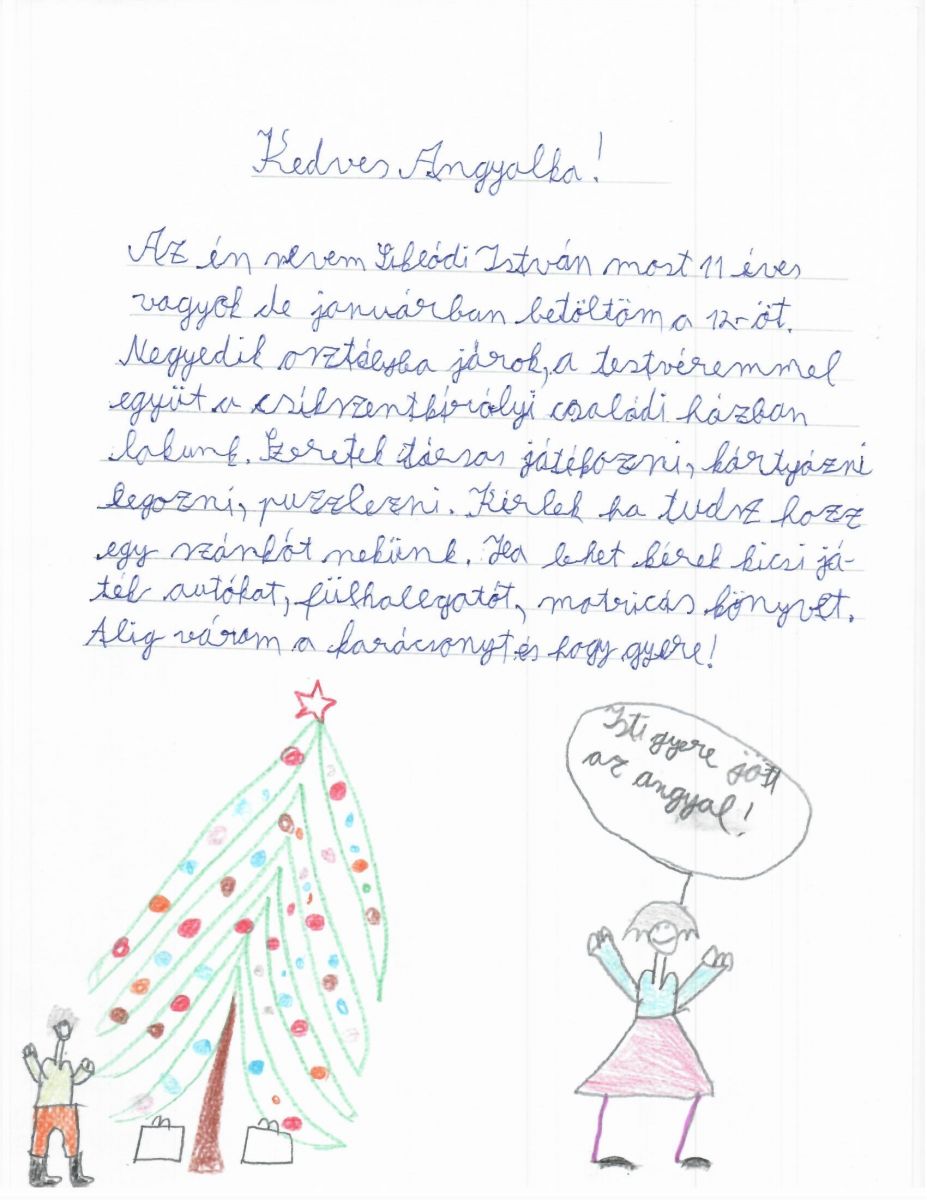 Kedves Angyalka!
Az én nevem Siklódi István most 11 éves
vagyok de januárban betöltöm a 12-öt.
Negyedik osztályba járok, a testvéremmel
együt a csíkszentkirályi családi házban
lakunk. Szeretek társas játékozni, kártyázni
legozni, puzzlezni. Kérlek ha tudsz hozz
egy szánkót nekünk. Ha lehet kérek kicsi já-
ték autókat, fülhalegatót, matricás könyvet.
Alig várom a karácsonyt és hogy gyere!
Isti gyere jött
az angyal!